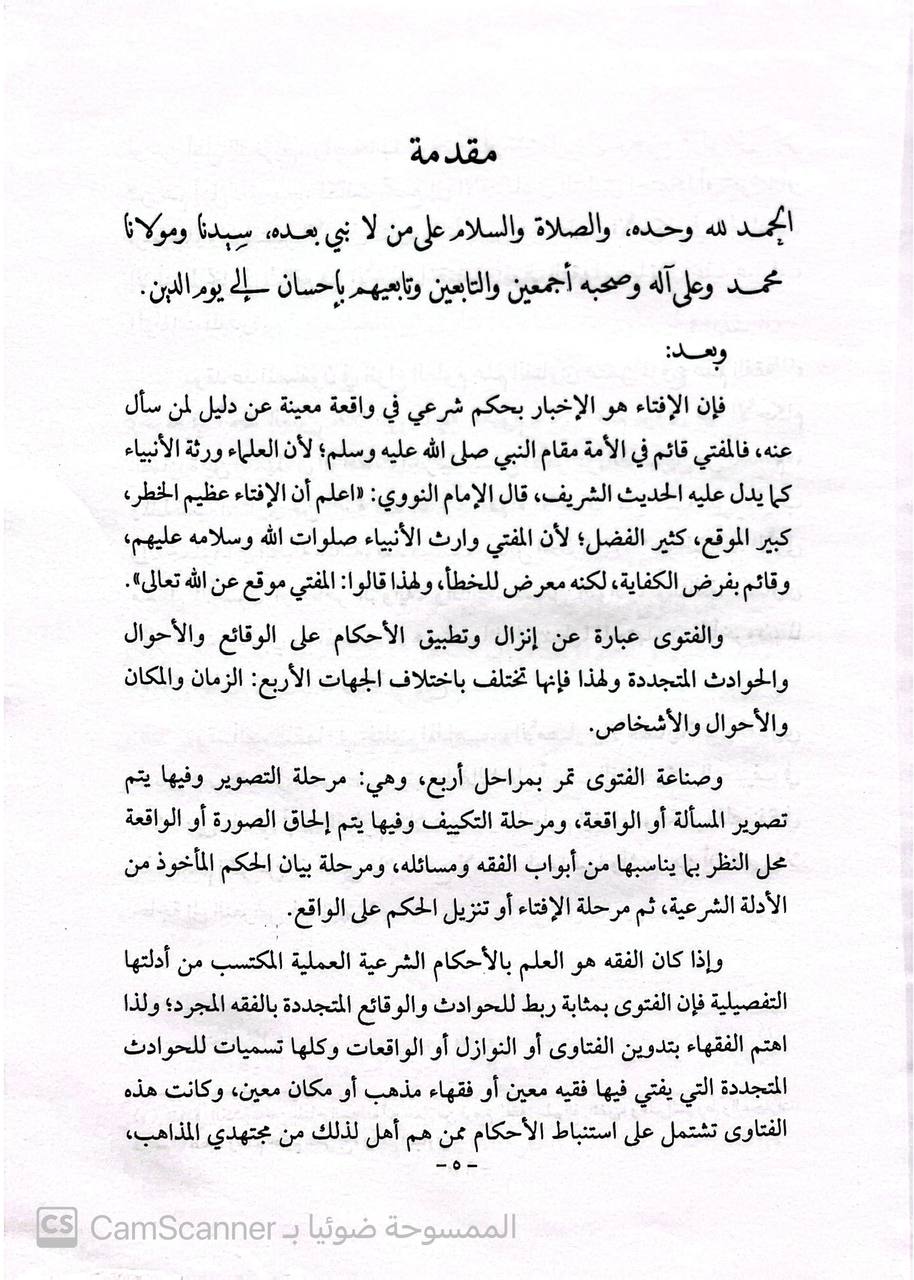 مقدمة
الحمد لله وحده، والصلاة والسلام على من لا نبي بعده، سيدنا ومولانا
محمد وعلى آله وصحبه أجمعين والتابعين وتابعيهم بإحسان إلى يوم الدين.
وبعد:
فإن الإفتاء هو الإخبار بحكم شرعي في واقعة معينة عن دليل لمن سأل
عنه، فالمفتي قائم في الأمة مقام النبي صلى الله عليه وسلم؛ لأن العلماء ورثة الأنبياء
كما يدل عليه الحديث الشريف، قال الإمام النووي: «اعلم أن الإفتاء عظيم الخطر،
كبير الموقع، كثير الفضل؛ لأن المفتي وارث الأنبياء صلوات الله وسلامه عليهم،
وقائم بفرض الكفاية، لكنه معرض للخطأ، ولهذا قالوا: المفتي موقع عن الله تعالى».
والفتوى عبارة عن إنزال وتطبيق الأحكام على الوقائع والأحوال
والحوادث المتجددة ولهذا فإنها تختلف باختلاف الجهات الأربع: الزمان والمكان
والأحوال والأشخاص.
وصناعة الفتوى تمر بمراحل أربع، وهي: مرحلة التصوير وفيها يتم
تصوير المسألة أو الواقعة، ومرحلة التكييف وفيها يتم إلحاق الصورة أو الواقعة
محل النظر بما يناسبها من أبواب الفقه ومسائله، ومرحلة بيان الحكم المأخوذ من
الأدلة الشرعية، ثم مرحلة الإفتاء أو تنزيل الحكم على الواقع.
وإذا كان الفقه هو العلم بالأحكام الشرعية العملية المكتسب من أدلتها
التفصيلية فإن الفتوى بمثابة ربط للحوادث والوقائع المتجددة بالفقه المجرد؛ ولذا
اهتم الفقهاء بتدوين الفتاوى أو النوازل أو الواقعات وكلها تسميات للحوادث
المتجددة التي يفتي فيها فقيه معين أو فقهاء مذهب أو مكان معين، وكانت هذه
الفتاوى تشتمل على استنباط الأحكام ممن هم أهل لذلك من مجتهدي المذاهب،
- ٥ -
CS الممسوحة ضوئيا بـ CamScanner